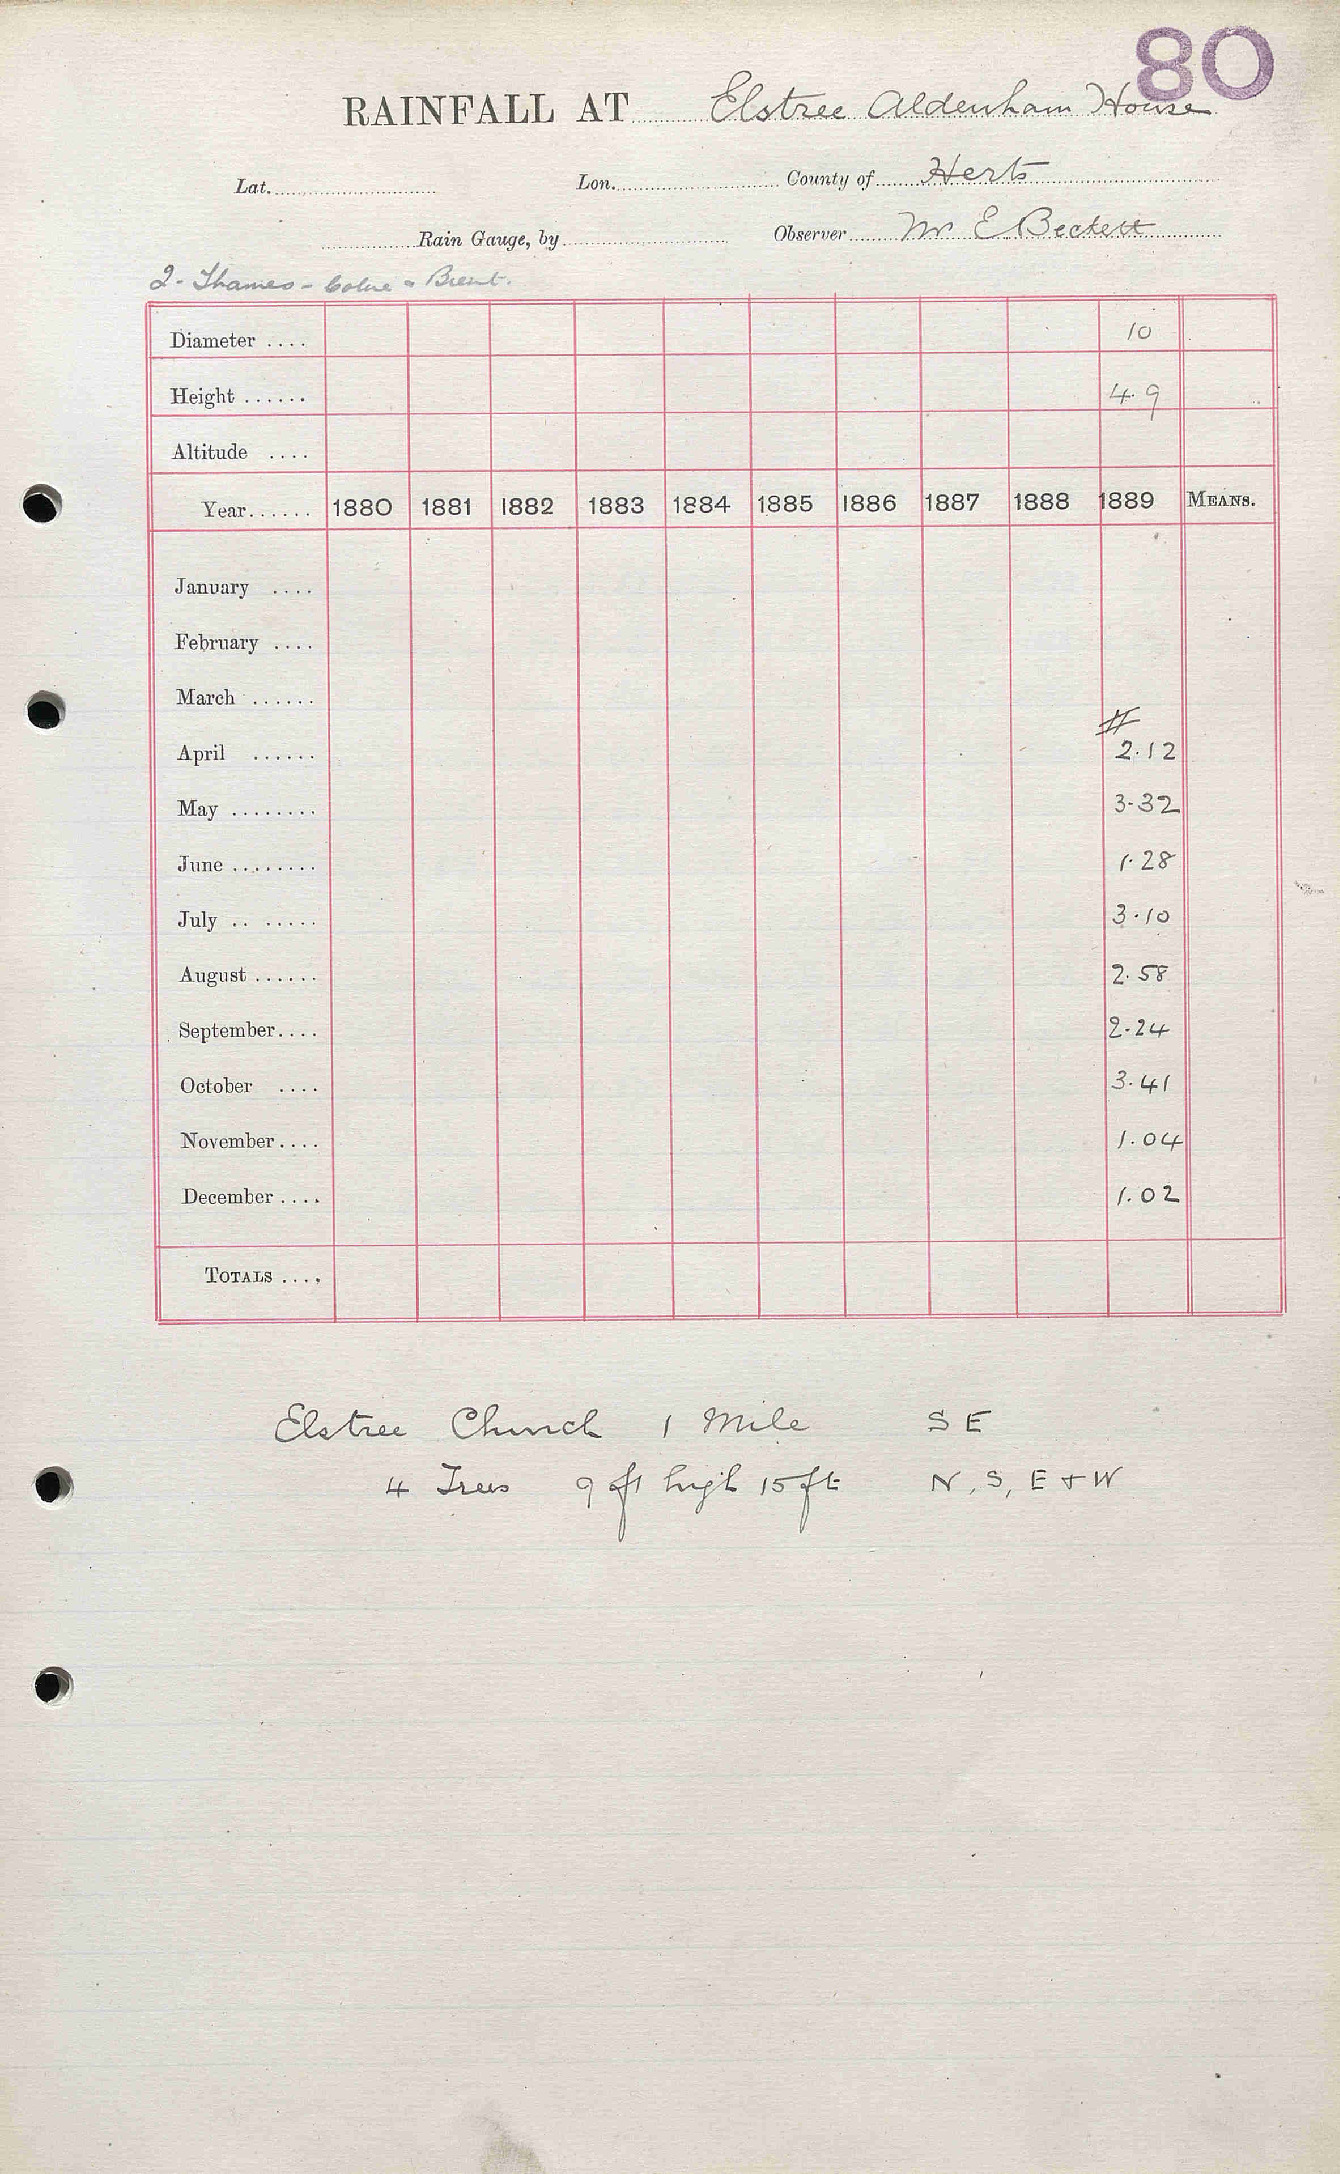 80
RAINFALL AT Elstree Aldenham House
Lat. Lon. County of Herts
Rain Gauge, by Observer Mr E Beckett
2. Thames - Colne & Brent.
Diameter .... 10
Height ...... 4.9
Altitude ....
Year...... 1880 1881 1882 1883 1884 1885 1886 1887 1888 1889 MEANS.
January ....
February ....
March ......
#
April ...... 2.12
May ........ 3.32
June ........ 1.28
July .. ..... 3.10
August ...... 2.58
September.... 2.24
October .... 3.41
November.... 1.04
December .... 1.02
TOTALS ....
Elstree Church 1 Mile S E
4 Trees 9 ft high 15 ft N, S, E + W